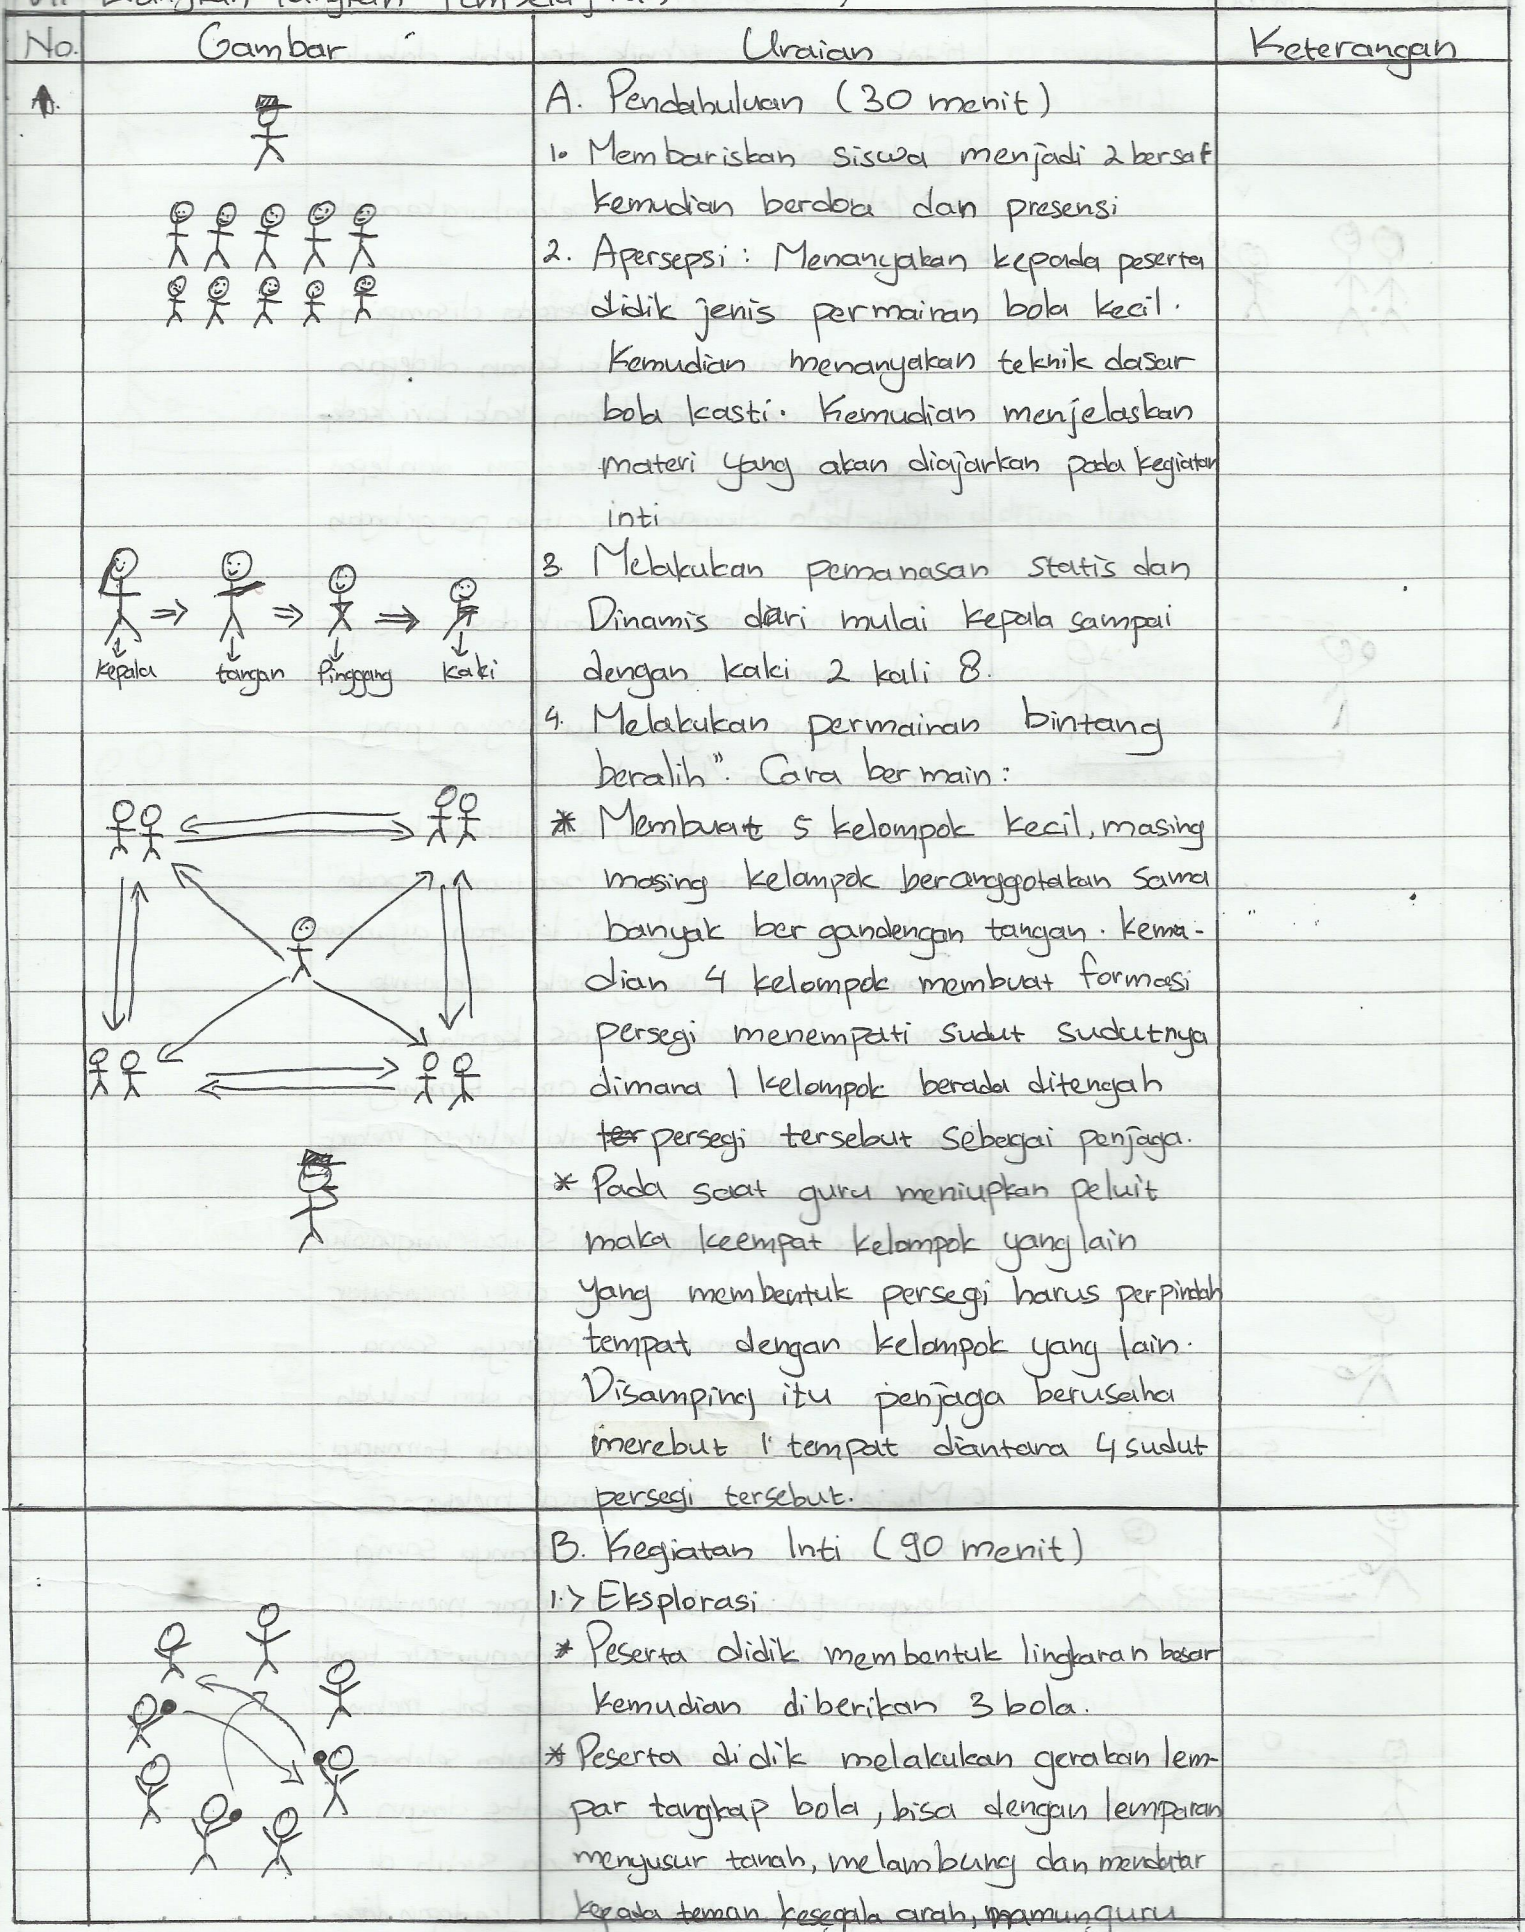 No. Gambar Uraian Keterangan
A. Pendahuluan (30 menit)
1. Membariskan siswa menjadi 2 bersaf
kemudian berdoa dan presensi
2. Apersepsi : Menanyakan kepada peserta
didik jenis permainan bola kecil.
Kemudian menanyakan teknik dasar
bola kasti. Kemudian menjelaskan
materi yang akan diajarkan pada kegiatan
inti
3. Melakukan pemanasan statis dan
Dinamis dari mulai kepala sampai
dengan kaki 2 kali 8.
kepala tangan Pinggang kaki
4. Melakukan permainan bintang
beralih". Cara bermain :
* Membuat 5 kelompok kecil, masing
masing kelompok beranggotakan sama
banyak ber gandengan tangan. kema-
dian 4 kelompok membuat formasi
persegi menempati sudut sudutnya
dimana 1 kelompok berada ditengah
persegi tersebut sebagai penjaga.
* Pada saat guru meniupkan peluit
maka keempat kelompok yang lain
yang membentuk persegi harus perpindah
tempat dengan kelompok yang lain.
Disamping itu penjaga berusaha
merebut 1 tempat diantara 4 sudut
persegi tersebut.
B. Kegiatan Inti (90 menit)
1.> Eksplorasi
* Peserta didik membentuk lingkaran besar
kemudian diberikan 3 bola.
* Peserta didik melakukan gerakan lem-
par tangkap bola, bisa dengan lemparan
menyusur tanah, melambung dan mendatar
kepada teman kesegala arah, namun guru